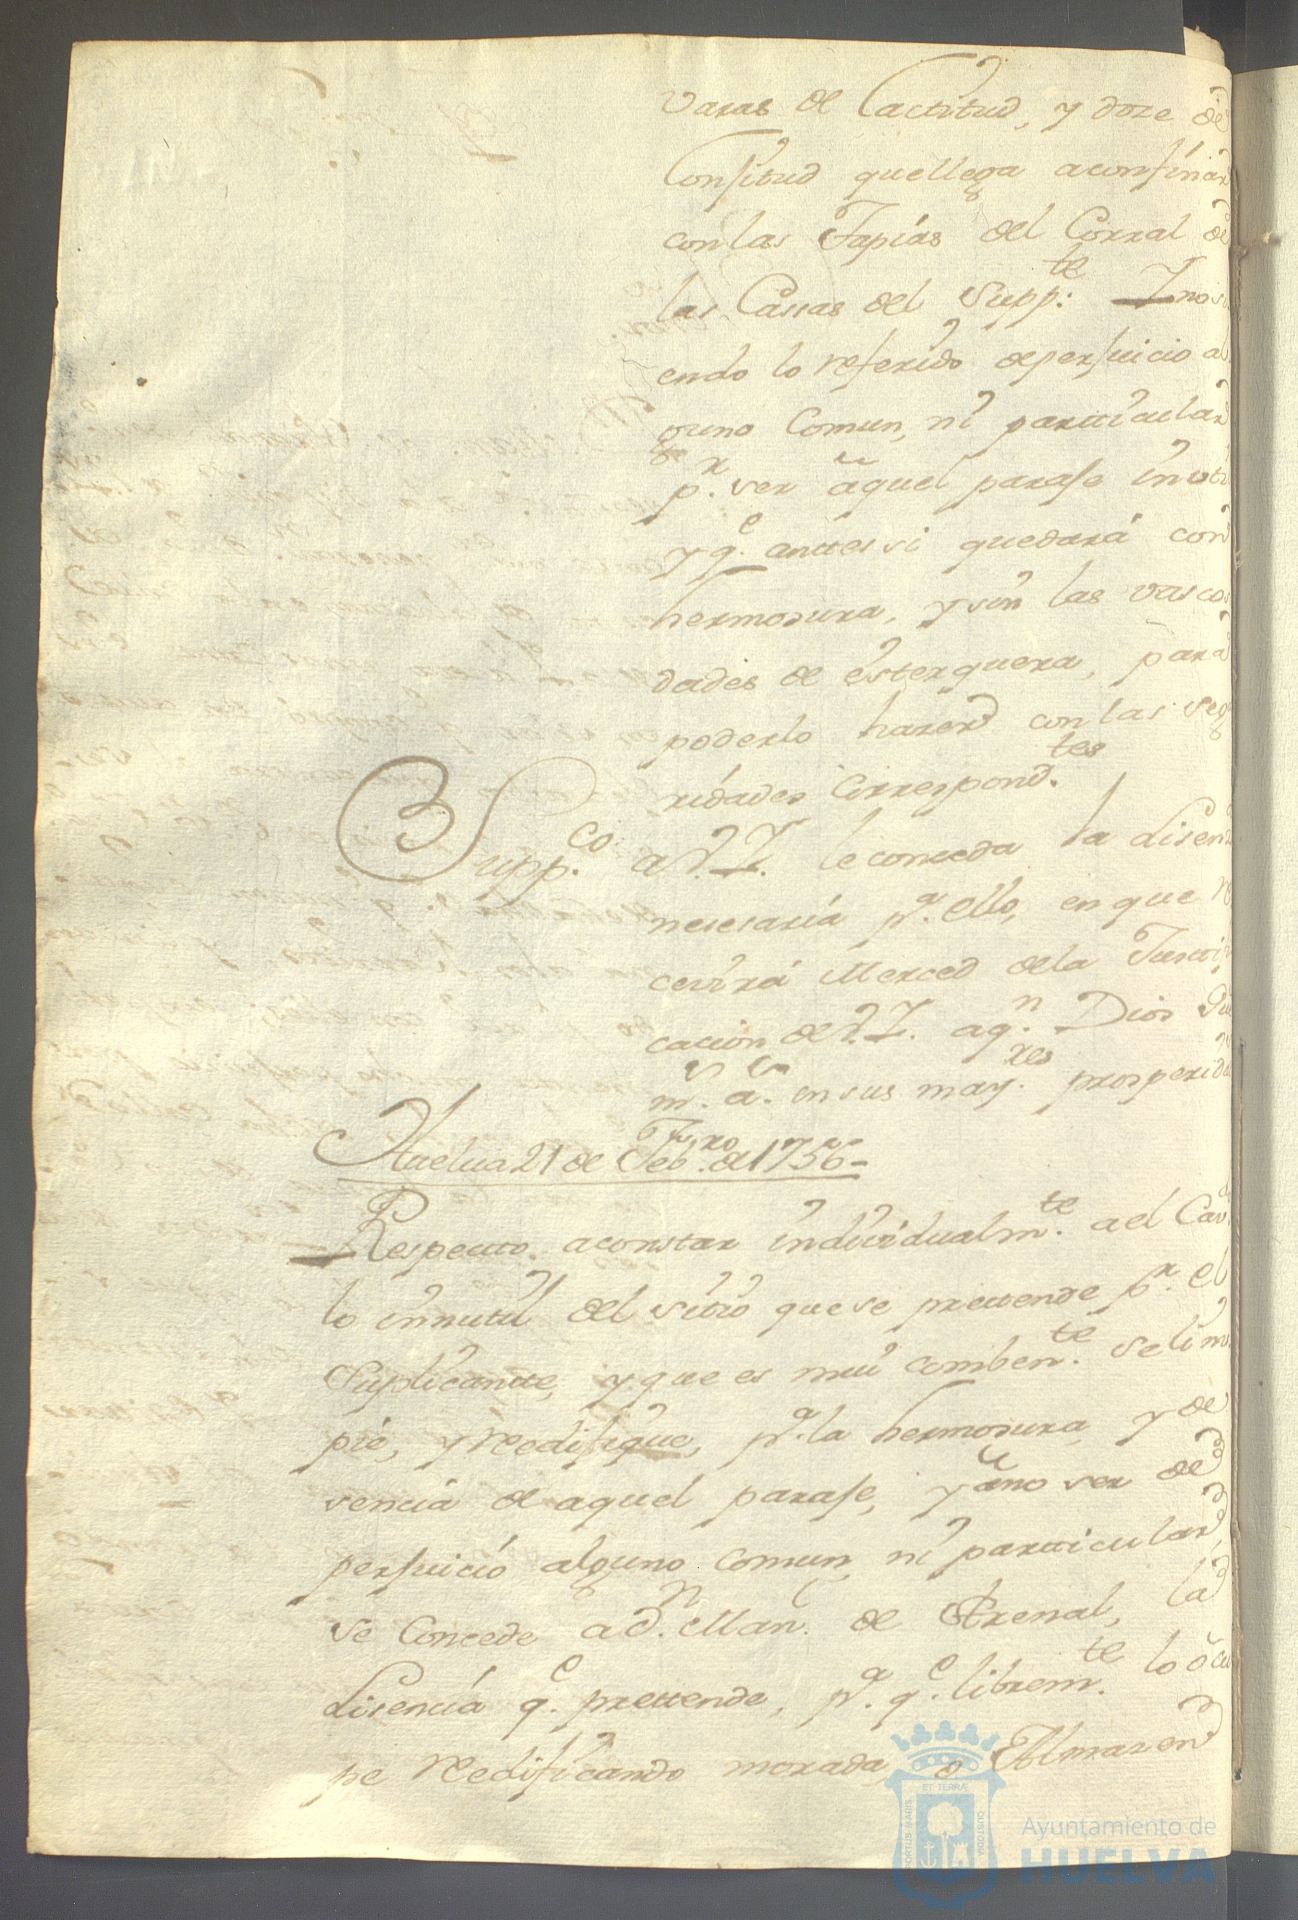 varas de Lactitud, y doze de
Lonjitud que llega a confinar
con las Tapias del Corral de
las Casas del Supp.te Y no si
endo lo referido de perjuicio al
guno Comun, ni particular
p.r ser aquel paraje inuti
y q.e antes si quedará con
hermosura, y sin las vasco
dades de esterquera, para
poderlo hazer con las seg
ridades Correspond.tes
Supp.co a V.I. le conceda la Lisen
nesesaria p.a ello, en que re
cevirá Merced de la Justifi
cacion de V.I. a q.n Dios Gu
m.s a.s en sus may.res prosperida
Huelva 21 de Feb.ro de 1756-
Respecto a constar individualm.te a el Cav.
lo innutil del sitio que se prettende p.r el
Suplicante, y que es mui comben.te se lim
pie, y redifique, p.a la hermosura y de
sencia de aquel paraje, y a no ser de
perjuicio alguno comun, ni particular,
se Concede a D.n Man.l de Arenal, la
Lisencia q.e prettende, p.a q.e librem.te lo ocu
pe redificando morada, o Almazen
Ayuntamiento de
HUELVA
PORTUS MARIS
ET TERRÆ
CUSTODIA